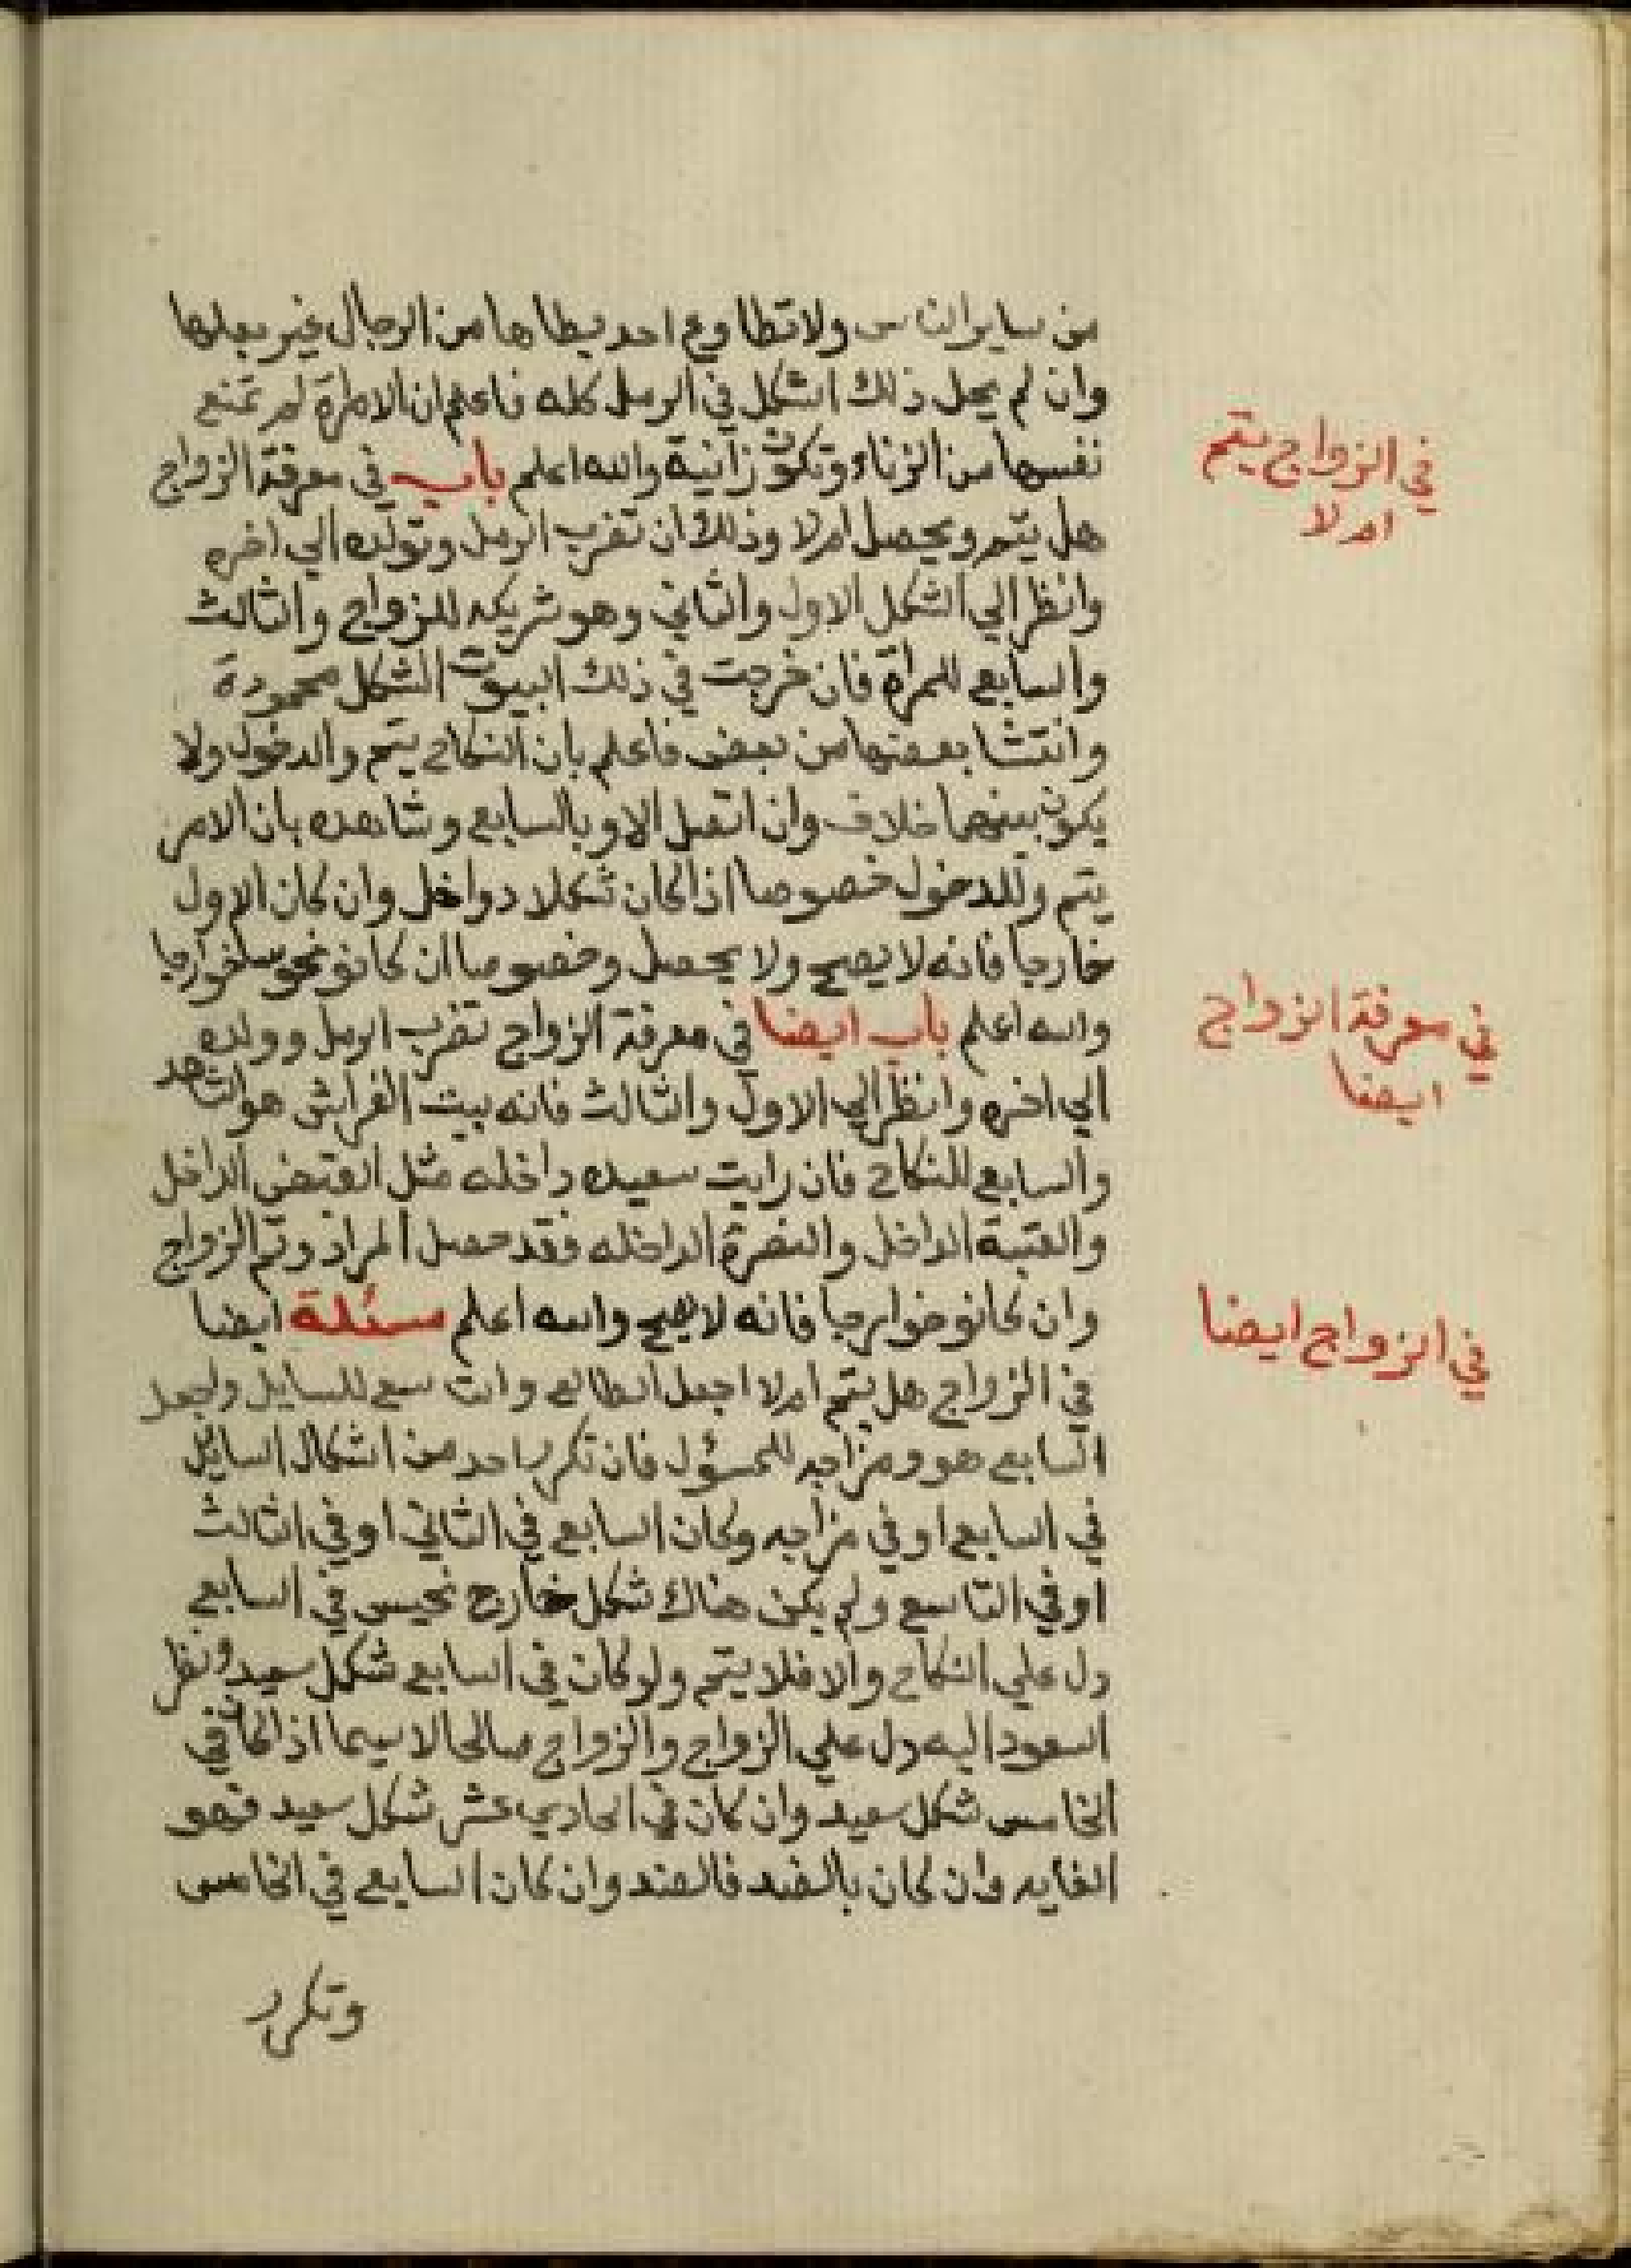 من ساير الناس ولا تطاوع احد يطاها من الرجال غير بعلها
وان لم يحل ذلك الشكل في الرمل كله فاعلم ان الامراة لم تمنع
نفسها من الزناء وتكون زانية والله اعلم باب في معرفة الزواج
في الزواج يتم
ام لا
هل يتم ويحصل ام لا وذلك ان تضرب الرمل وتولده الي اخره
وانظر الي الشكل الاول والثاني وهو شريكه للزواج والثالث
والسابع للمراة فان خرجت في ذلك البيوت الشكل محمودة
وانتشا بعضها من بعض فاعلم بان النكاح يتم والدخول ولا
يكون بينهما خلاف وان اتصل الاو بالسابع وشاهده بان الامر
يتم وللدخول خصوصا اذا كان شكلا دواخل وان كان الاول
خارجا فانه لا يصح ولا يحصل وخصوصا ان كانو نحوسا خوارجا
والله اعلم باب ايضا في معرفة الزواج تضرب الرمل وولده
في معرفة الزواج
ايضا
الي اخره وانظر الي الاول والثالث فانه بيت الفرايش هو الشاهد
والسابع للنكاح فان رايت سعيده داخله مثل القبض الداخل
والعتبة الداخل والنصرة الداخله فقد حصل المراد وتم الزواج
وان كانو خوارجا فانه لا يصح والله اعلم مسئلة ايضا
في الزواج ايضا
في الزواج هل يتم ام لا اجعل الطالع وات سع للسايل واجعل
السابع هو ومزاجه للمسؤل فان تكرر احد من اشكال السائل
في السابع او في مزاجه وكان السابع في الثاني او في الثالث
او في التاسع ولم يكن هناك شكل خارج نحيس في السابع
دل علي النكاح والا فلا يتم ولو كان في السابع شكل سعيد ونظر
السعود اليه دل علي الزواج والزواج صالحا لا سيما اذا كان في
الخامس شكل سعيد وان كان في الحادي عشر شكل سعيد فهو
الغايه وان كان بالضد فالضد وان كان السابع في الخامس
وتكرر